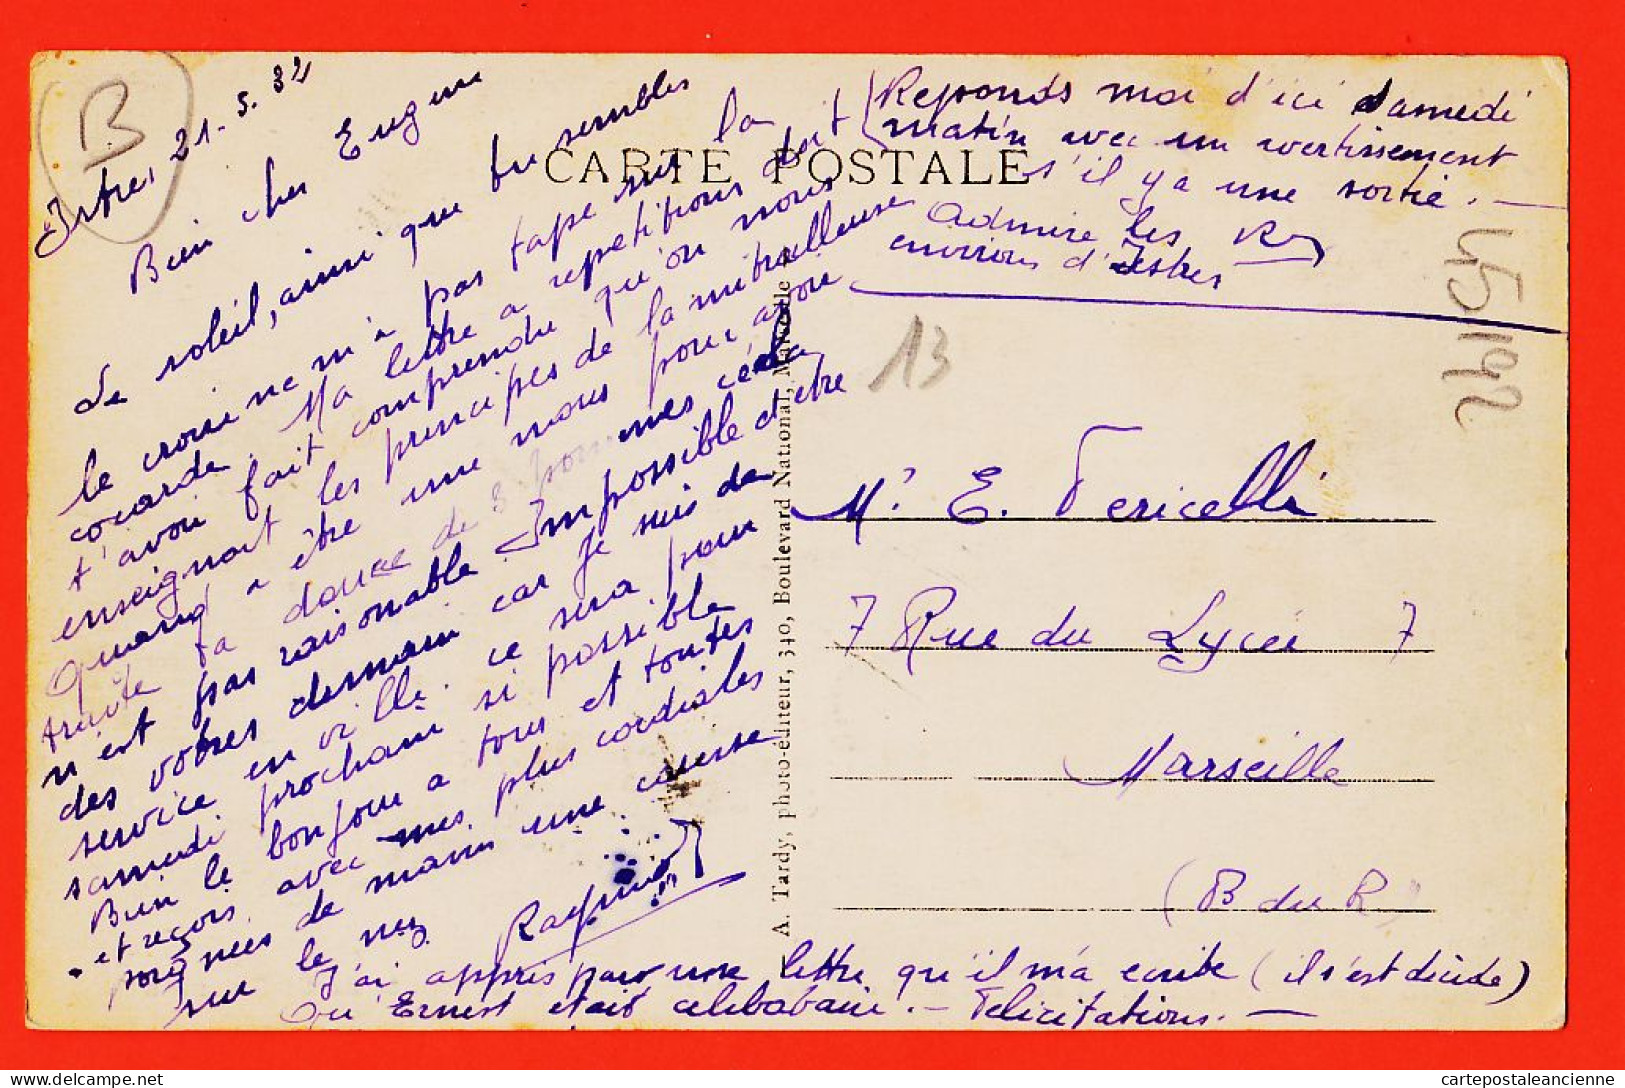 B
Istres 21.5.32
Bien cher Eugène
Le soleil, ainsi que tu sembles
le croire ne m'a pas tapé sur la
cocarde. Ma lettre a repetitions doit
t'avoir fait comprendre qu'on nous
enseignait les principes de la mitrailleuse
Quand a être une nous pour, avoir
traite ta douce de 3 pommes cela
n'est pas raisonable. Impossible d'etre
des votres demain car je suis de
service en ville. ce sera pour
samedi prochain si possible
Bien le bonjour a tous et toutes
et reçois avec mes plus cordiales
poignées de mains une caresse
sur le nez
Raymond
J'ai appris par une lettre qu'il m'a ecrite (il s'est décidé)
qu' Ernest etait celibataire. - Felicitations. -
CARTE POSTALE
Reponds moi d'ici samedi
matin avec un avertissement
s'il y a une sortie. -
Admire les
environs d'Istres
45192
13
A. Tardy, photo-éditeur, 340, Boulevard National, Marseille
Mr E. Vericelli
7 Rue du Lycée 7
Marseille
(B du R)
cartepostaleancienne
delcampe.net